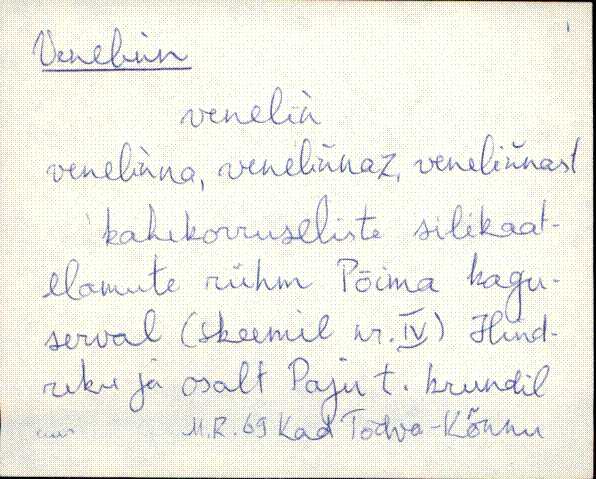 Venelinn
venelìn
venelìnna, venelin̆naz, venelin̆nast
kahekorruseliste silikaat-
elamute rühm Põima kagu-
serval (skeemil nr. IV) Hind-
reku ja osalt Paju t. krundil
M.R. 69 Kad Tõdva-Kõnnu